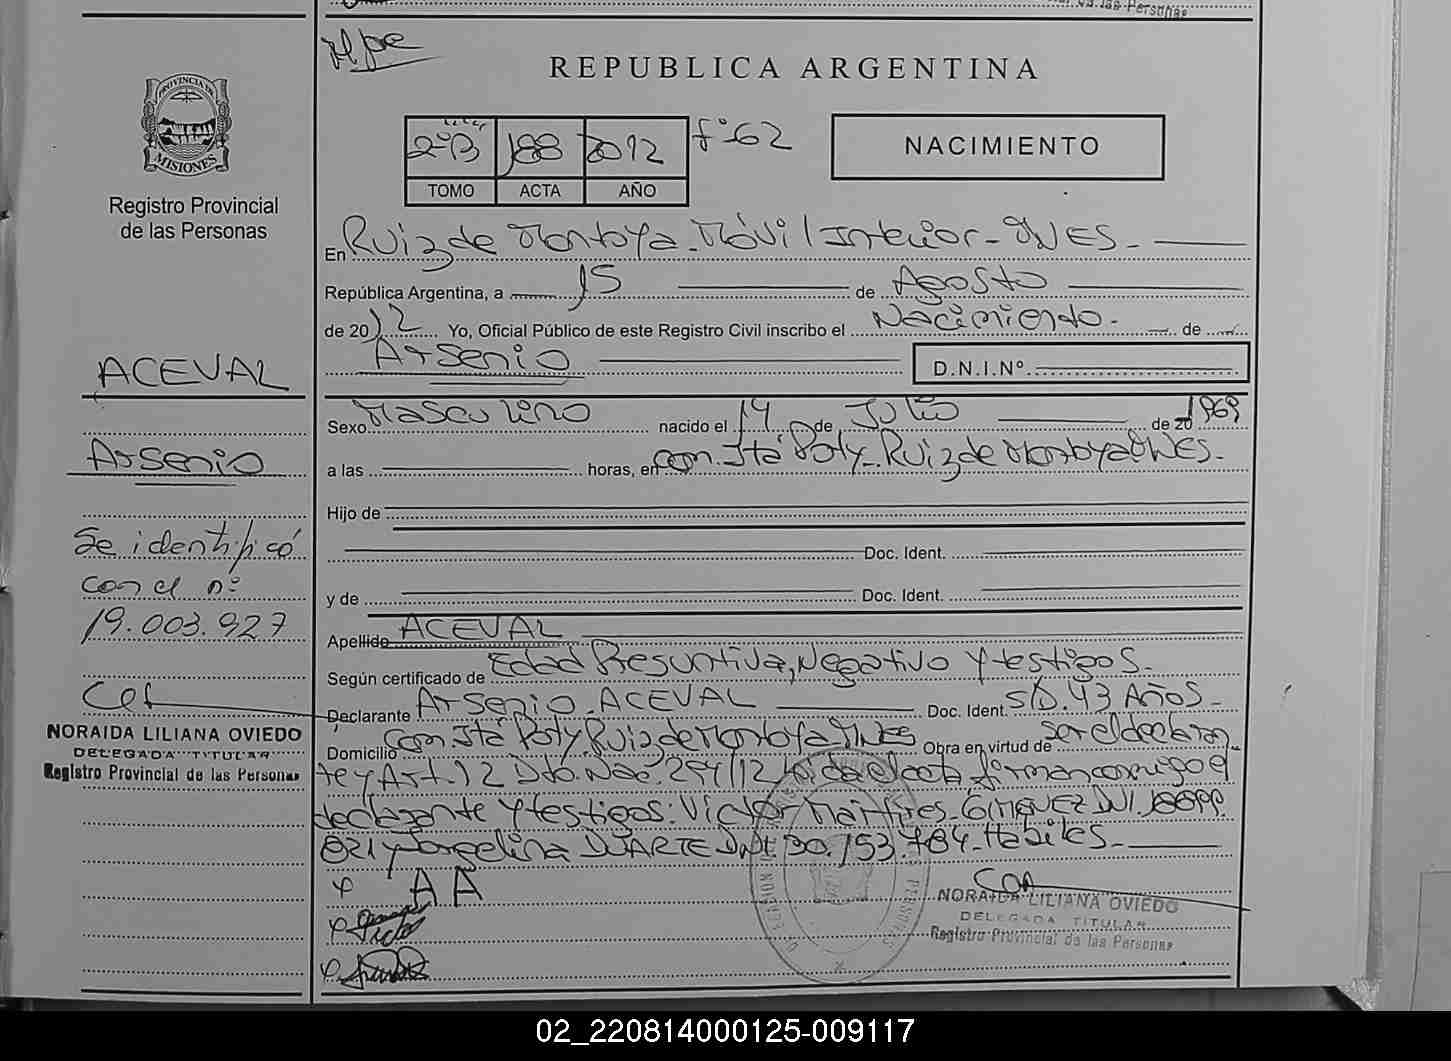 de las Personas
REPUBLICA ARGENTINA
PROVINCIA DE
MISIONES
Registro Provincial
de las Personas
2º B 188 2012 fº 62
TOMO ACTA AÑO
NACIMIENTO
En Ruiz de Montoya - Móvil Interior - MNES -
República Argentina, a 15 de Agosto
de 2012 Yo, Oficial Público de este Registro Civil inscribo el Nacimiento - de
Arsenio
D.N.I.Nº
ACEVAL
Arsenio
Se identificó
con el nº
19.003.927
NORAIDA LILIANA OVIEDO
DELEGADA TITULAR
Registro Provincial de las Personas
Sexo Masculino nacido el 14 de Julio de 20 1969
a las horas, en Com. Itá Poty - Ruiz de Montoya MNES -
Hijo de
Doc. Ident.
y de Doc. Ident.
Apellido ACEVAL
Según certificado de Edad Presuntiva, Negativo y testigos -
Declarante Arsenio ACEVAL Doc. Ident. S/D. 43 AÑOS -
Domicilio Com. Itá Poty Ruiz de Montoya MNES Obra en virtud de ser el declaran
te y Art. 12 Dto. Nac. 294/12 leída el acta firman conmigo el
declarante y testigos: Victor Martires GIMENEZ DNI.
821 y DUARTE DNI. 30.153.784 - Hábiles -
A A
NORAIDA LILIANA OVIEDO
DELEGADA TITULAR
Registro Provincial de las Personas
02_220814000125-009117